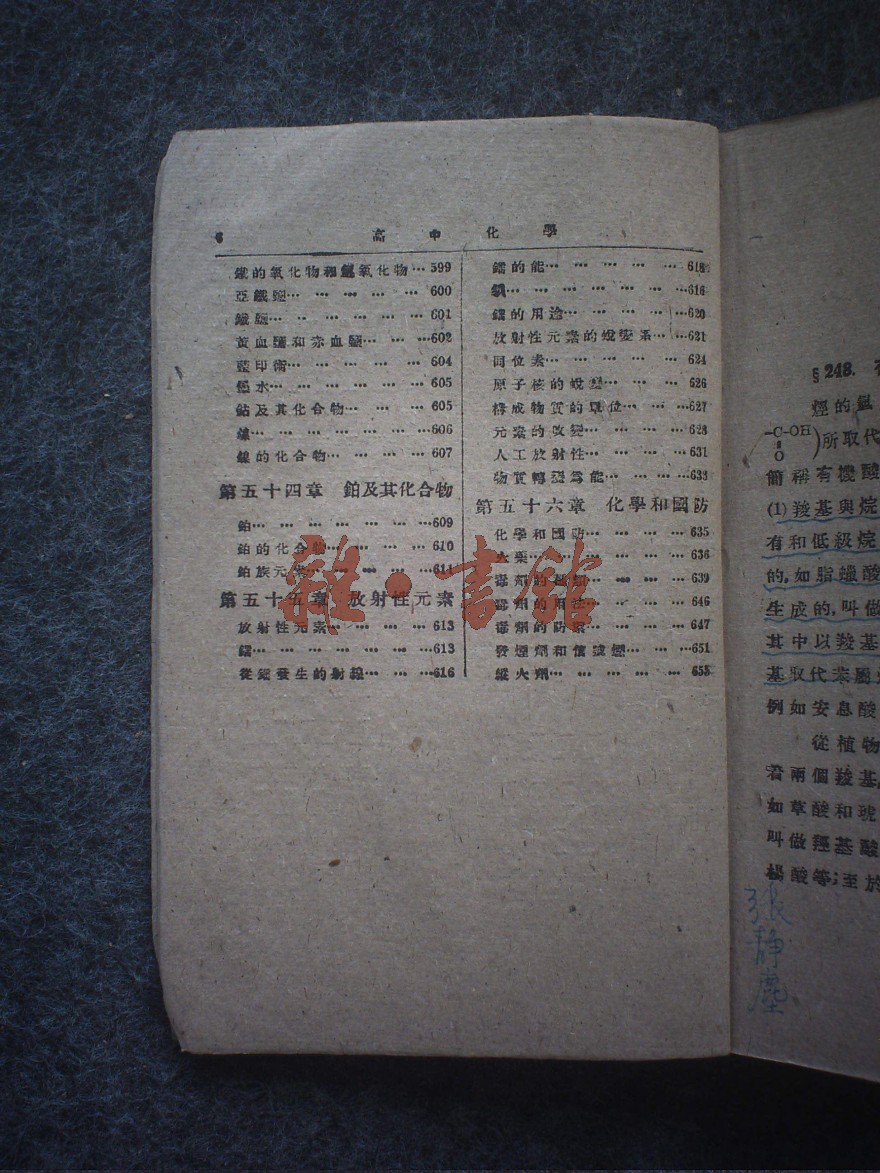 6 高中化學
鐵的氧化物和氫氧化物…599
亞鐵鹽… … … … …600
鐵鹽… … … … … …601
黃血鹽和赤血鹽… … …602
藍印術… … … … …604
墨水… … … … … …605
鈷及其化合物… … …605
鎳… … … … … …606
鎳的化合物… … … …607
第五十四章 鉑及其化合物
鉑… … … … … …609
鉑的化合物… … … …610
鉑族元素… … … … …611
第五十五章 放射性元素
放射性元素… … … …613
鐳… … … … … …613
從鐳發生的射線… … …616
鐳的能… … … … …618
… … … … … …616
鐳的用途… … … … …620
放射性元素的蛻變系… …621
同位素… … … … …624
原子核的蛻變… … … 626
構成物質的單位… … …627
元素的改變… … … …628
人工放射性… … … …631
物質轉變爲能… … …633
第五十六章 化學和國防
化學和國防… … … …635
火藥… … … … … …636
毒劑的種類… … … …639
毒劑的用法… … … …646
毒劑的防禦… … … …647
發煙劑和信號煙… … …651
縱火劑… … … … …655
雜·書館
§248.
烴的氫
-C-OH
O
)所取代
簡稱有機酸
(1)羧基與烷
有和低級烷
的,如脂蠟酸
生成的,叫做
其中以羧基
基取代苯屬
例如安息酸
從植物
着兩個羧基,
如草酸和琥
叫做羥基酸
楊酸等;至於
張靜塵